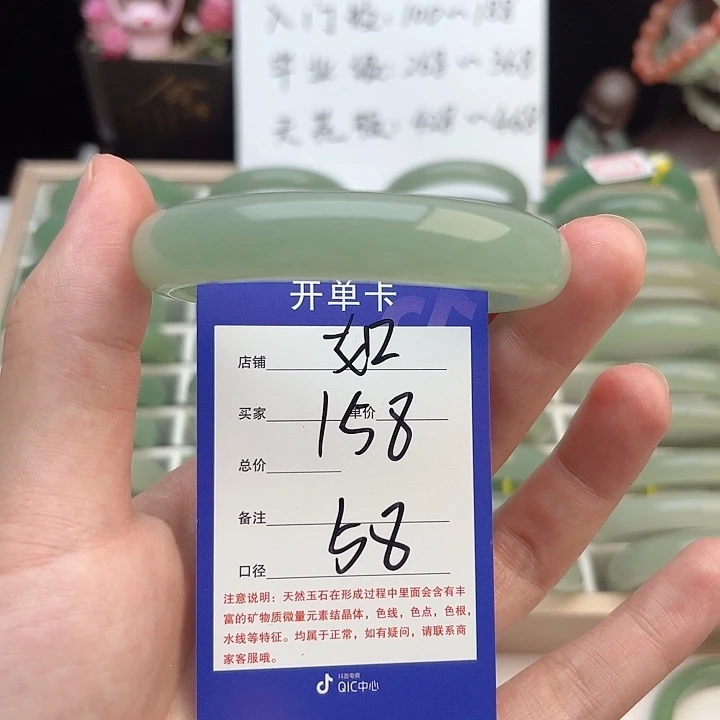 入门级:100~188
毕业级:268~368
天花板:428~668
开单卡
店铺 如
买家 158 单价
总价
备注 58
口径
注意说明:天然玉石在形成过程中里面会含有丰
富的矿物质微量元素结晶体,色线,色点,色根,
水线等特征。均属于正常,如有疑问,请联系商
家客服哦。
抖音电商
QIC中心